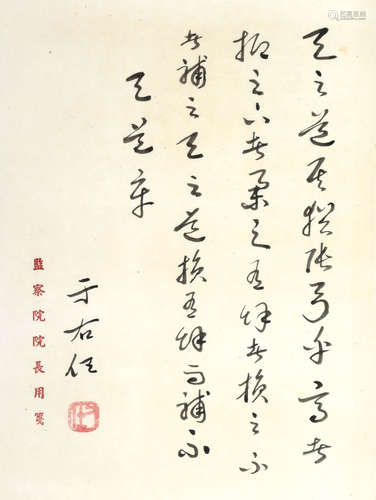 天之道其猶張弓乎高者
抑之下者舉之有餘者損之不
補之天之道損有餘而補不
天道章
于右任
監察院院長用箋